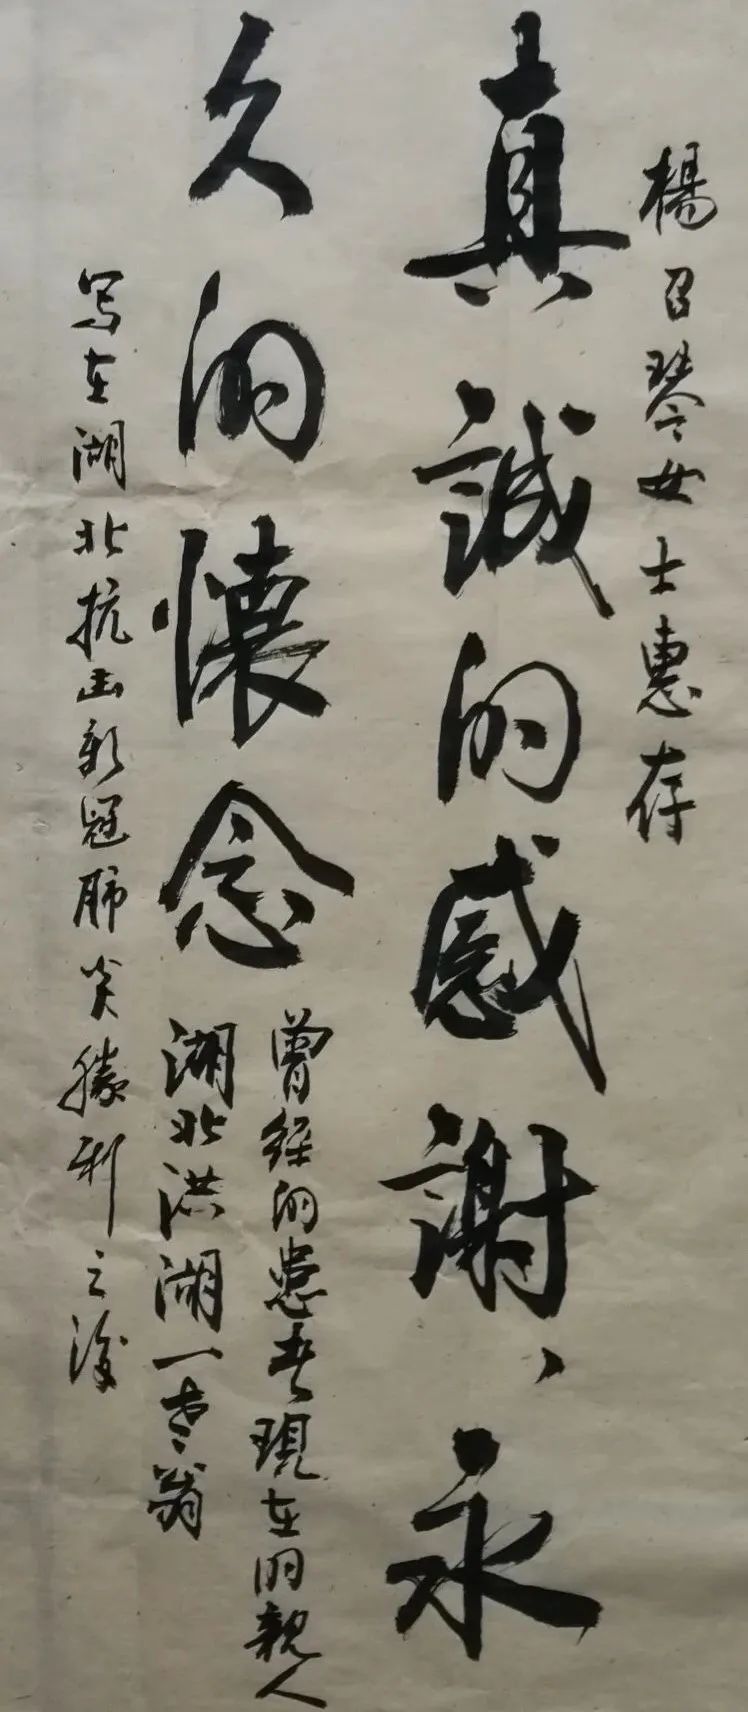 楊召琴女士惠存
真誠的感謝、永
久的懷念
曾经的患者現在的親人
湖北洪湖一老翁
写在湖北抗击新冠肺炎勝利之後